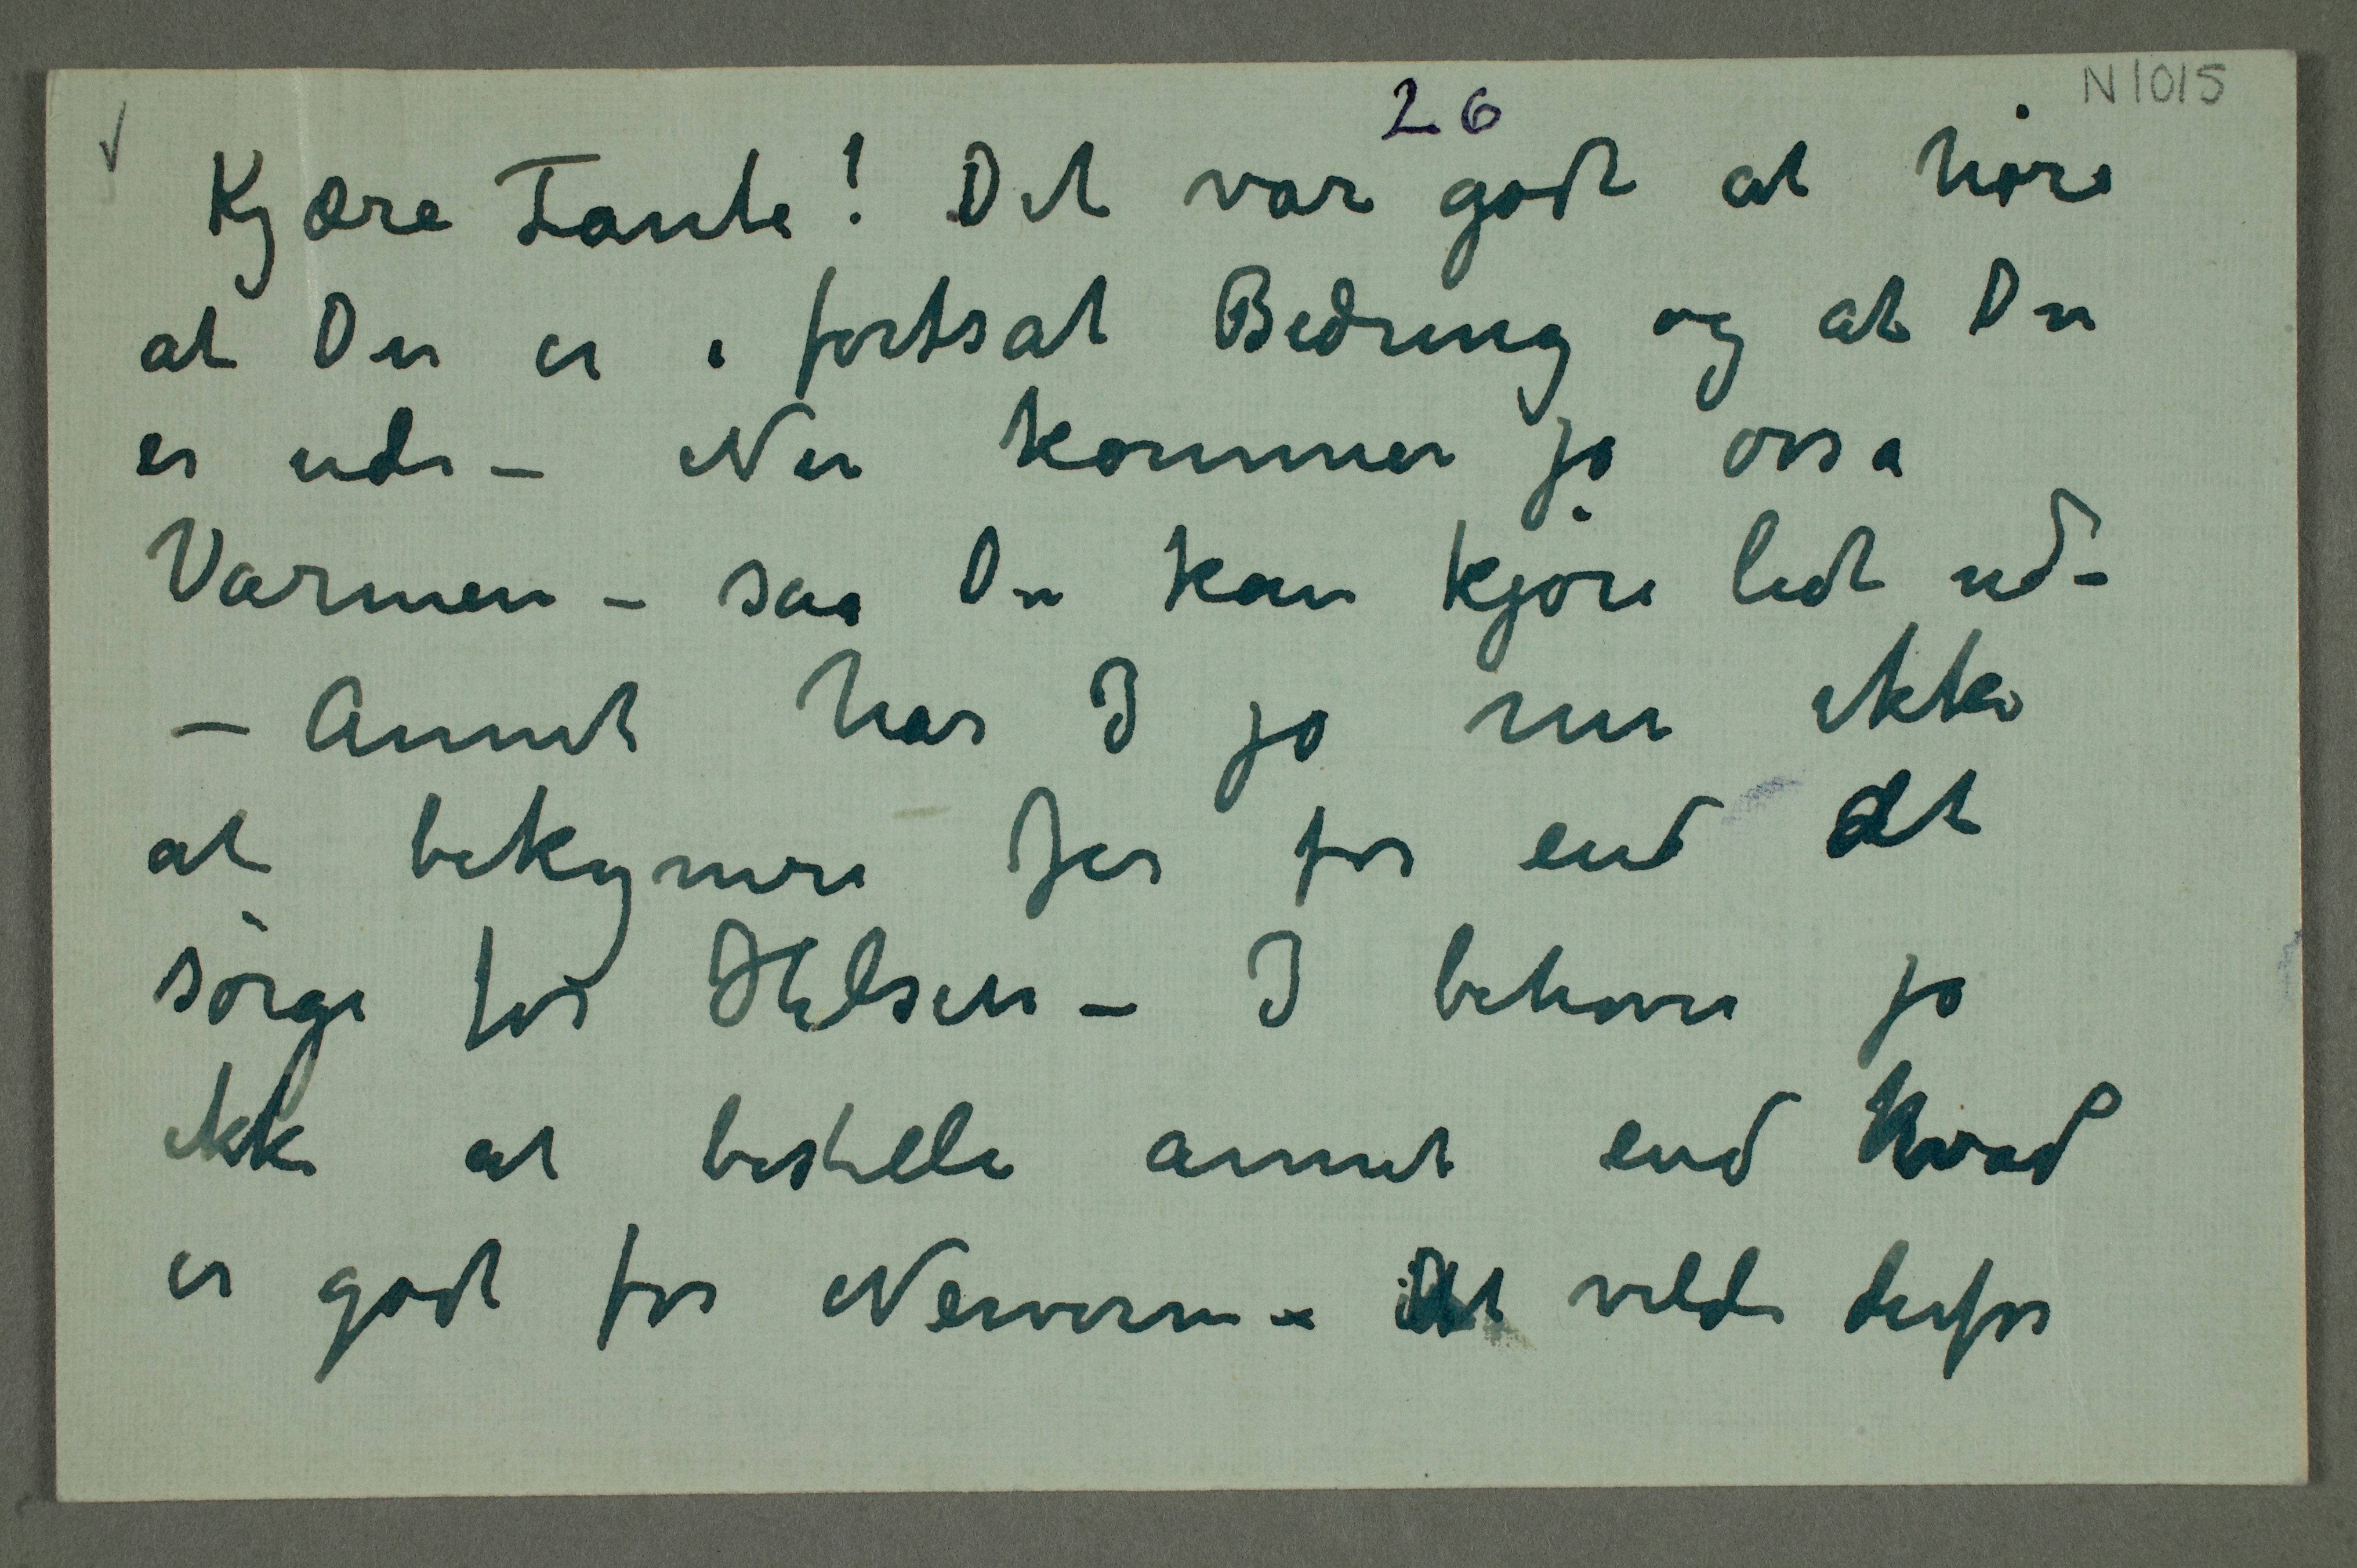 N 1015
26
Kjære Tante! Det var godt at høre
at Du er i fortsat Bedring og at Du
er ude – Nu kommer jo osså
Varmen – saa Du kan kjöre lidt ud –
– Annet har I jo nu ikke
at bekymre Jer for end at
sörge for Helsen – I behøver jo
ikke at bestille annet end hvad
er godt for Nerverne – Det vilde derfor